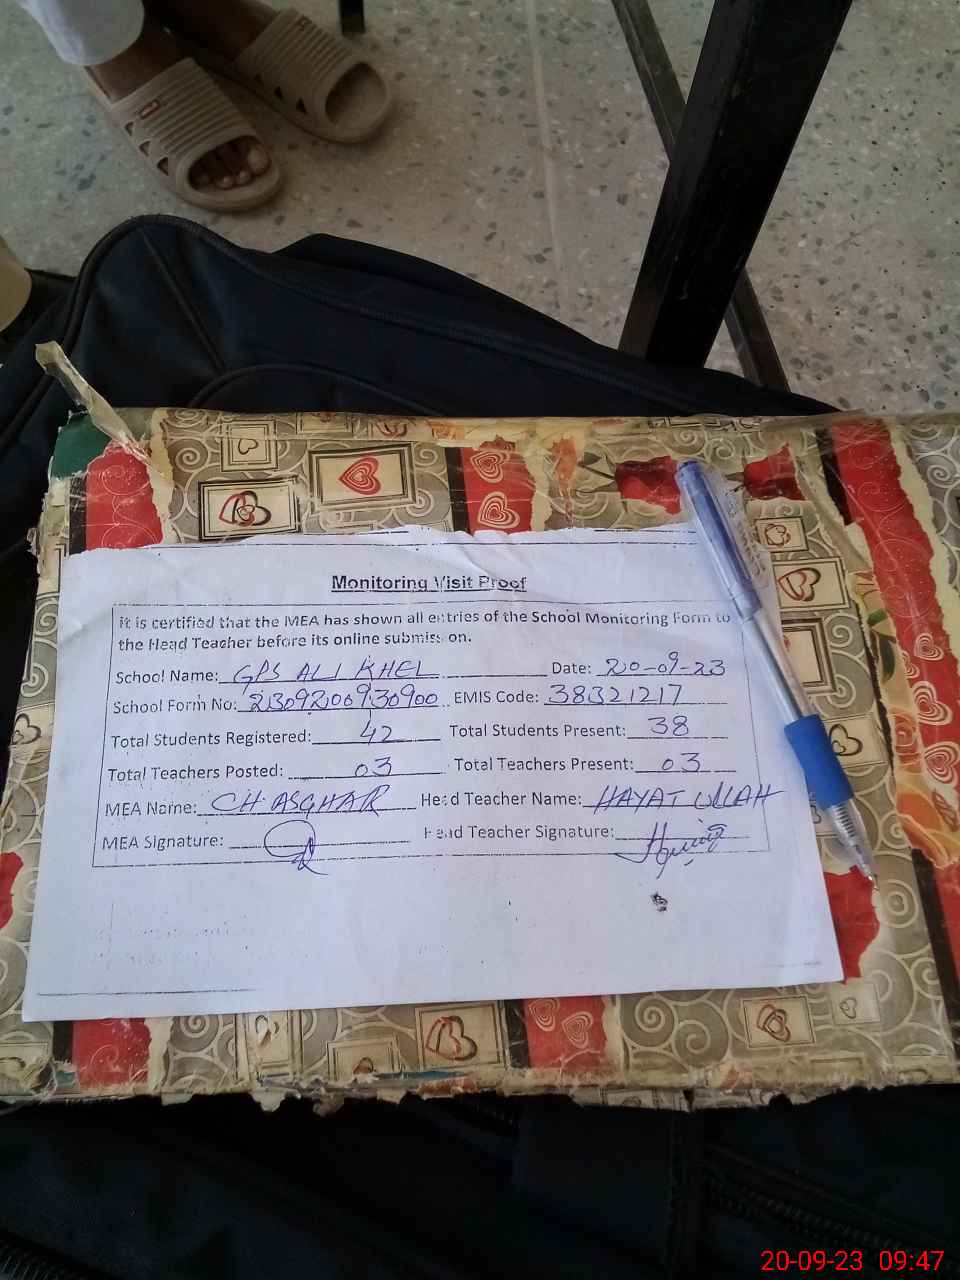 Monitoring Visit Proof
It is certified that the MEA has shown all entries of the School Monitoring Form to
the Head Teacher before its online submission.
School Name: GPS ALI KHEL Date: 20-09-23
School Form No: EMIS Code: 38321217
Total Students Registered: 42 Total Students Present: 38
Total Teachers Posted: 03 Total Teachers Present: 03
MEA Name: CH. ASGHAR Head Teacher Name: HAYAT ULLAH
MEA Signature: Head Teacher Signature:
20-09-23 09:47